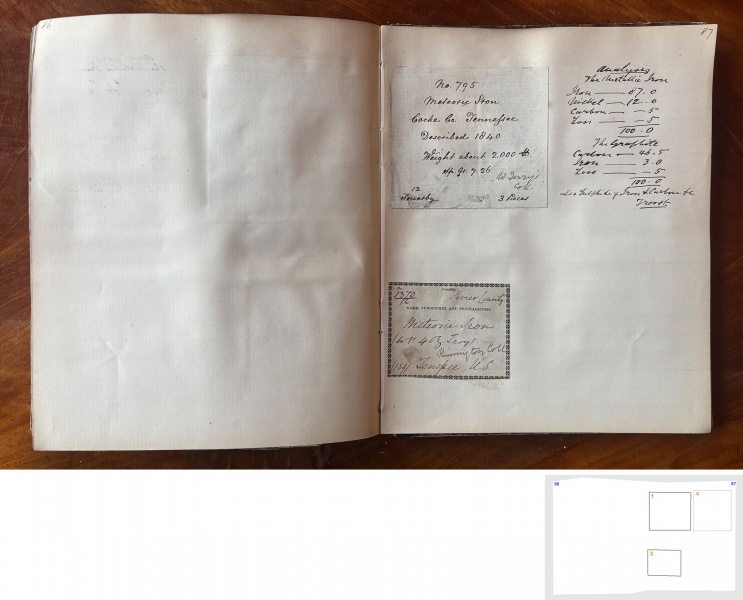 86
87
No. 795
Meteoric Iron
Cocke Co. Tennessee
Described 1840
Weight about 2.000 lb.
Sp. Gr. 7.26.
Coll
12
Sowerby
3 Pieces
Analysis
The Metallic Iron
Iron — 87.0
Nickel — 12.0
Carbon — .5
Loss — .5
100.0
The Graphite
Carbon — 96.5
Iron 3.0
Loss — .5
100.0
also Sulphide of Iron & Carbon &c
Troost.
1370
Sevier County
NAME, SYNONYMES, AND PECULIARITIES
Meteoric Iron
4 oz Troy
Coll
Tennessee U.S.
86
87
1
2